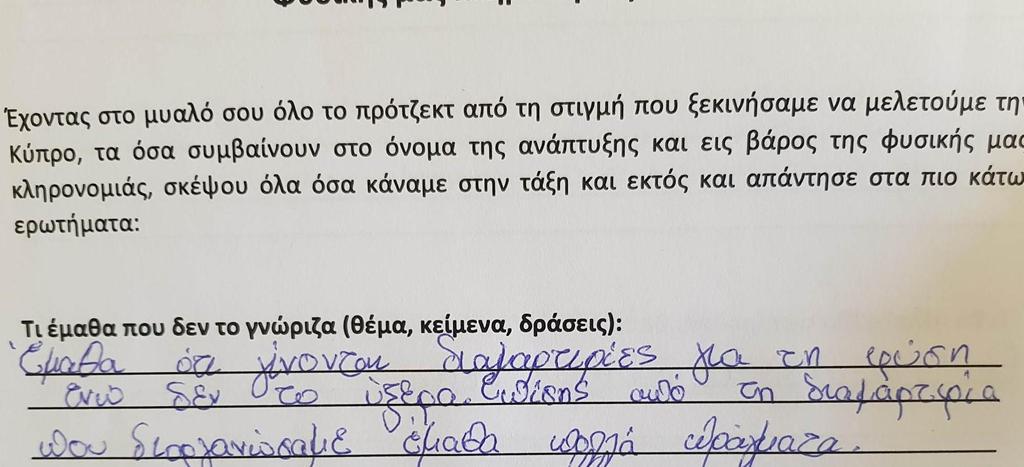 Έχοντας στο μυαλό σου όλο το πρότζεκτ από τη στιγμή που ξεκινήσαμε να μελετούμε την
Κύπρο, τα όσα συμβαίνουν στο όνομα της ανάπτυξης και εις βάρος της φυσικής μας
κληρονομιάς, σκέψου όλα όσα κάναμε στην τάξη και εκτός και απάντησε στα πιο κάτω
ερωτήματα:
Τι έμαθα που δεν το γνώριζα (θέμα, κείμενα, δράσεις):
Έμαθα ότι γίνονται διαμαρτιρίες για τη φύση
ενώ δεν το ύξερα. Επίσης από τη διαμαρτιρία
που διοργανώσαμε έμαθα πολλά πράγματα.